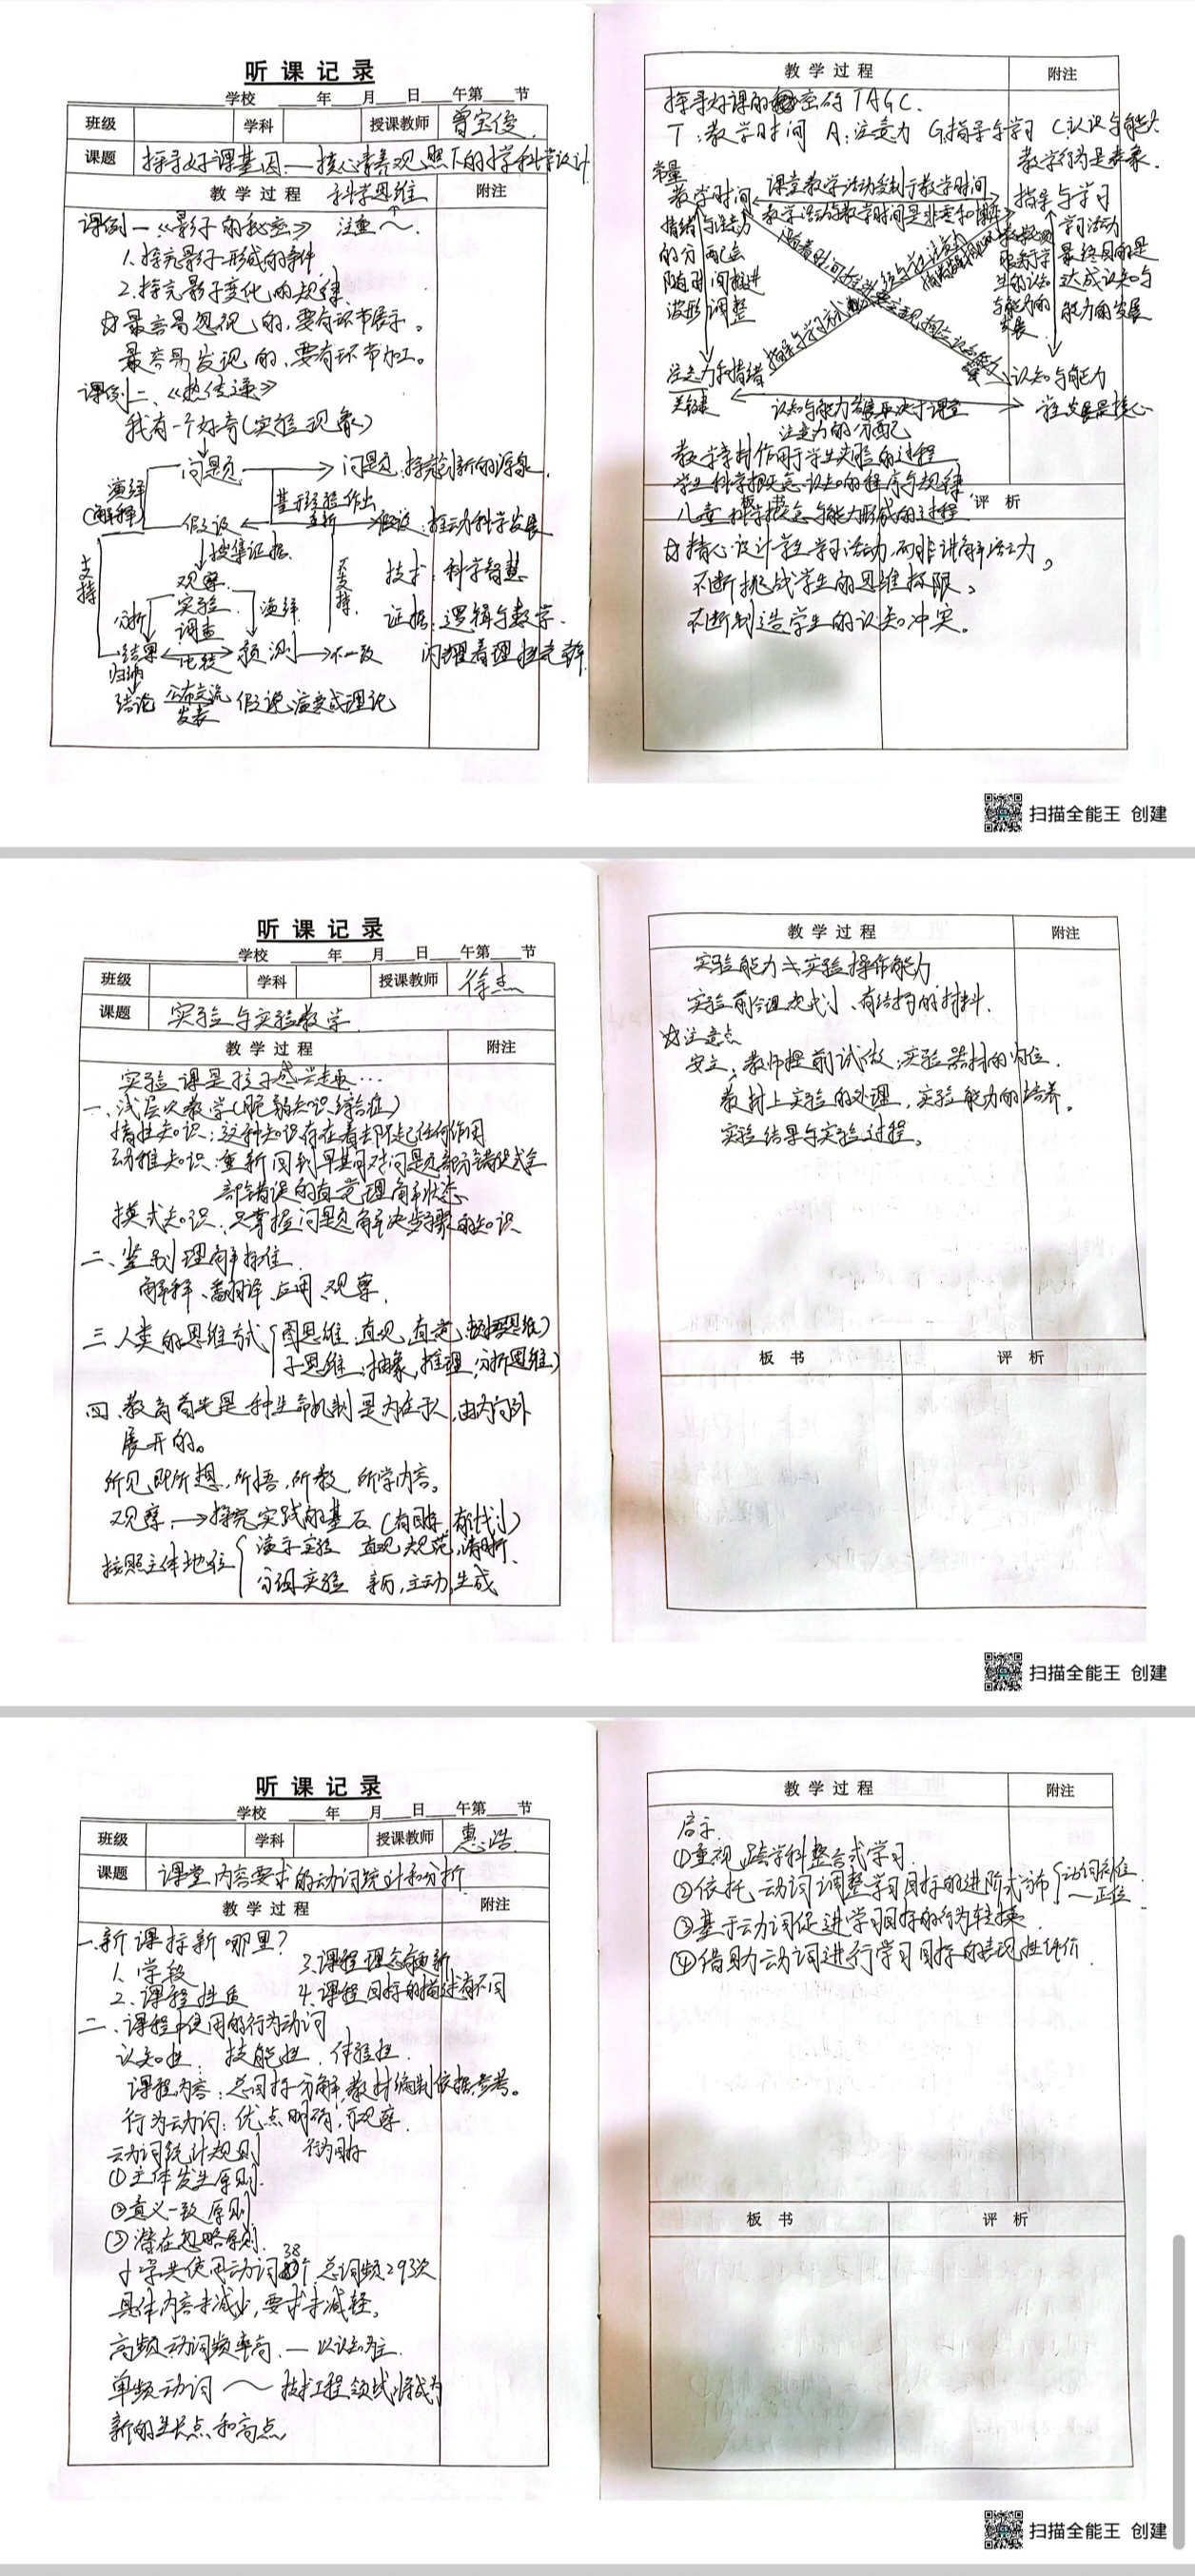 听课记录
学校 年 月 日 午第 节
班级 学科 授课教师 曾宝俊
课题 探寻好课基因——核心素养观照下的科学设计
教学过程 科学思维 附注
课例一《影子的秘密》 注重～
1.探究影子形成的条件
2.探究影子变化的规律
☆最容易忽视的,要有环节展示。
最容易发现的,要有环节加工。
课例二、《热传递》
我有一个好奇(实验现象)
问题 问题:探究创新的源泉.
演绎
(解释)
基于经验作出
假设 重新 假设:推动科学发展
搜集证据
支持
不支持
观察 技术:科学智慧
实验
调查
分析 演绎 证据:逻辑与数学.
结果 比较 预测 不一致 闪耀着理性光辉
归纳
结论 公布交流 假说演变成理论
发表
教学过程 附注
探寻好课的密码TAGC.
T:教学时间 A:注意力 G:指导与学习 C:认识与能力
教学行为是表象.
常量
教学时间 课堂教学活动受制于教学时间 指导与学习
教学活动与教学时间是非线和博弈
情绪与注意力
的分配会
随时间推进
波形调整
学习活动
最终目的是
达成认知与
能力的发展
注意力和情绪 认知与能力
关键 性发展是核心
认知与能力发展取决于课堂
注意力的分配
教学素材作用于学生实验的过程
学生科学概念认知的程序与规律
板书 评析
儿童科学概念与能力形成的过程
☆精心设计学生学习活动,而非讲解活动,
不断挑战学生的思维极限,
不断制造学生的认知冲突。
扫描全能王 创建
听课记录
学校 年 月 日 午第 节
班级 学科 授课教师 徐杰
课题 实验与实验教学
教学过程 附注
实验课是孩子感兴趣…
一、浅层次教学(脆弱知识综合症)
惰性知识:这种知识存在着却不起任何作用
幼稚知识:重新回到早期对问题部分错误或全
部错误的直觉理解状态
模式知识:只掌握问题解决步骤的知识
二、鉴别理解标准
解释、翻译、应用、观察.
三、人类的思维方式 图思维、直观、直觉、
子思维、抽象、推理、分析思维)
四、教育首先是种生命机制是内在于人,由内向外
展开的。
所见即所想,所悟,所教,所学内容。
观察→探究实践的基石(有目标 有计划)
按照主体地位 演示实验 直观 规范,清晰.
分组实验 主动,生成
教学过程 附注
实验能力≠实验操作能力
实验前合理规划、有结构的材料.
☆注意点
安全、教师提前试做,实验器材的
教材上实验的处理,实验能力的培养。
实验结果与实验过程。
板书 评析
扫描全能王 创建
听课记录
学校 年 月 日 午第 节
班级 学科 授课教师 惠浩
课题 课堂内容要求的动词统计和分析
教学过程 附注
一、新课标新哪里?
1.学段 3.课程理念有更新
2.课程性质 4.课程目标的描述有不同
二、课程中使用的行为动词
认知性、技能性、体验性.
课程内容:总目标分解,教材编制依据,参考。
行为动词:优点明确,可观察.
动词统计规则 行为目标
①主体发生原则.
②意义一致原则
③潜在忽略原则.
小学共使用动词38个 总词频293次
具体内容未减少,要求未减轻。
高频动词频率高.—以认知为主.
单频动词～技术工程领域,将成为
新的生长点和高点,
教学过程 附注
启示.
①重视跨学科整合式学习.
②依托动词调整学习目标的进阶式分布
③基于动词促进学习目标的行为转换.
④借助动词进行学习目标的表现性评价.
板书 评析
扫描全能王 创建